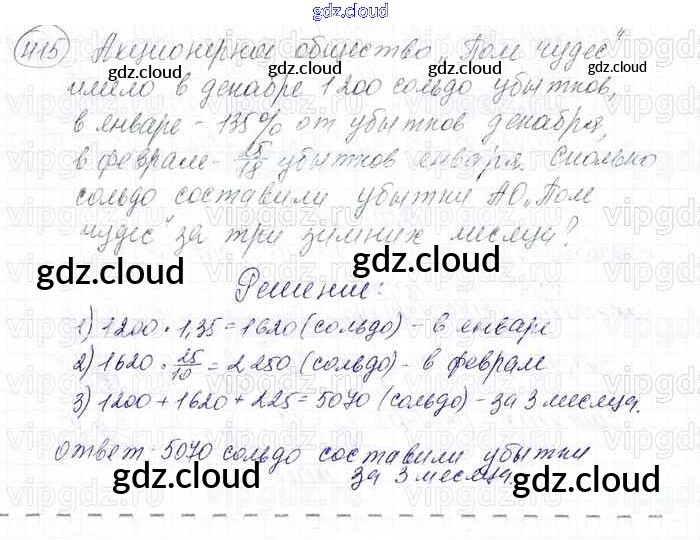 gdz.cloud
415 Акционерное общество „Поле чудес"
имело в декабре 1200 сольдо убытков,
в январе - 135% от убытков декабря,
в феврале - 25/18 убытков января. Сколько
сольдо составили убытки АО „Поле
чудес" за три зимних месяца?
Решение:
1) 1200 · 1,35 = 1620 (сольдо) - в январе
2) 1620 · 25/10 = 2250 (сольдо) - в феврале
3) 1200 + 1620 + 225 = 5070 (сольдо) - за 3 месяца.
ответ: 5070 сольдо составили убытки
за 3 месяца.